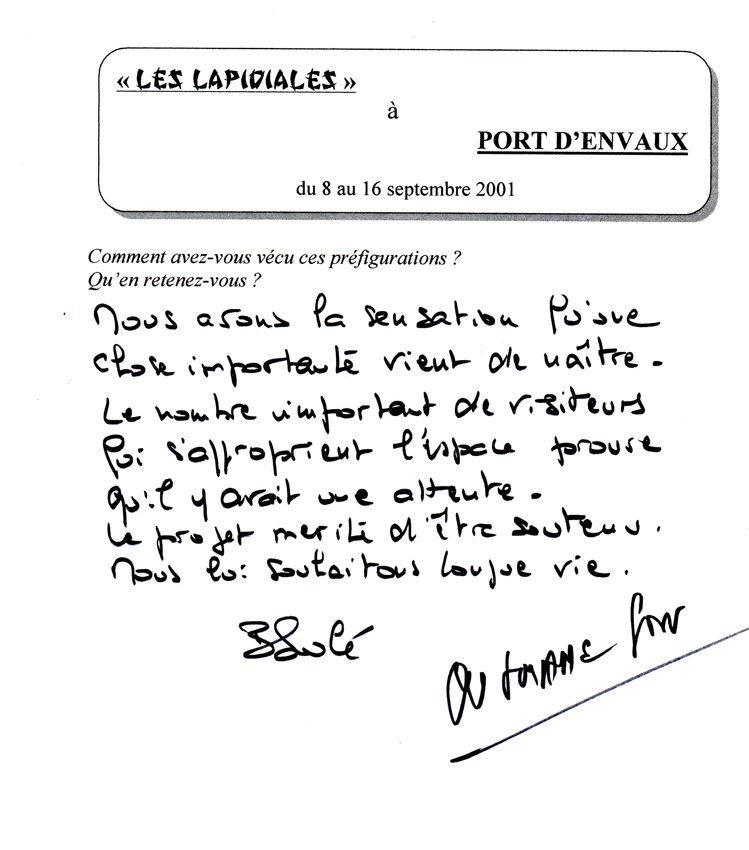 « LES LAPIDIALES »
à
PORT D'ENVAUX
du 8 au 16 septembre 2001
Comment avez-vous vécu ces préfigurations ?
Qu'en retenez-vous ?
Nous avons la sensation qu'une
chose importante vient de naître.
Le nombre important de visiteurs
qui s'approprient l'espace prouve
qu'il y avait une attente.
Le projet mérite d'être soutenu.
Nous lui souhaitons longue vie.